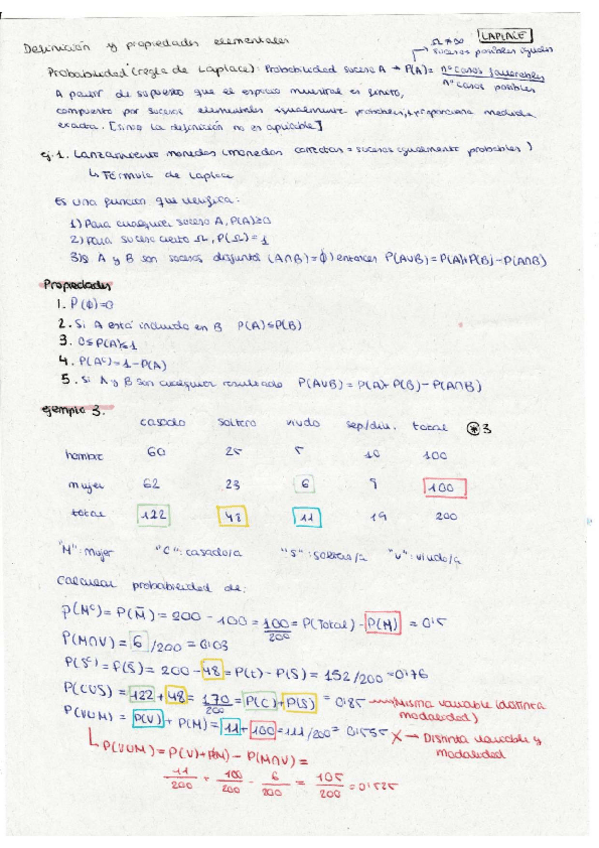 Definición y propiedades elementales
LAPLACE
Ω ≠ ∞
sucesos posibles iguales
Probabilidad (regla de Laplace): Probabilidad suceso A → P(A) = nº casos favorables / nº casos posibles
A partir de supuesto que el espacio muestral es finito,
compuesto por sucesos elementales igualmente probables, proporciona medida
exacta. [sino la definición no es aplicable]
ej. 1. Lanzamiento monedas (monedas correctas = sucesos igualmente probables)
↳ Fórmula de Laplace
Es una función que verifica:
1) Para cualquier suceso A, P(A)≥0
2) Para suceso cierto Ω, P(Ω) = 1
3) Si A y B son sucesos disjuntos (A∩B) = ϕ) entonces P(A∪B) = P(A)+P(B) - P(A∩B)
Propiedades
1. P(ϕ)=0
2. Si A está incluido en B P(A)≤P(B)
3. 0≤P(A)≤1
4. P(Aᶜ)=1-P(A)
5. Si A y B son cualquier resultado P(A∪B) = P(A)+ P(B) - P(A∩B)
ejemplo 3.
casado soltero viudo sep/div. total * 3
hombre 60 25 5 10 100
mujer 62 23 6 9 100
total 122 48 11 19 200
"M": mujer "C": casado/a "S": soltero/a "V": viudo/a
Calcular probabilidad de:
P(Mᶜ) = P(M̄) = 200 - 100 = 100/200 = P(Total) - P(M) = 0'5
P(M∩V) = 6 /200 = 0'03
P(Sᶜ) = P(S̄) = 200 - 48 = P(t) - P(S) = 152/200 = 0'76
P(C∪S) = 122 + 48 = 170/200 = P(C) + P(S) = 0'85 → Misma variable (distinta
modalidad)
P(V∪M) = P(V) + P(M) = 11 + 100 = 111/200 = 0'555 X → Distinta variable y
modalidad
↳ P(V∪M) = P(V)+P(M) - P(M∩V) =
11/200 + 100/200 - 6/200 = 105/200 = 0'525